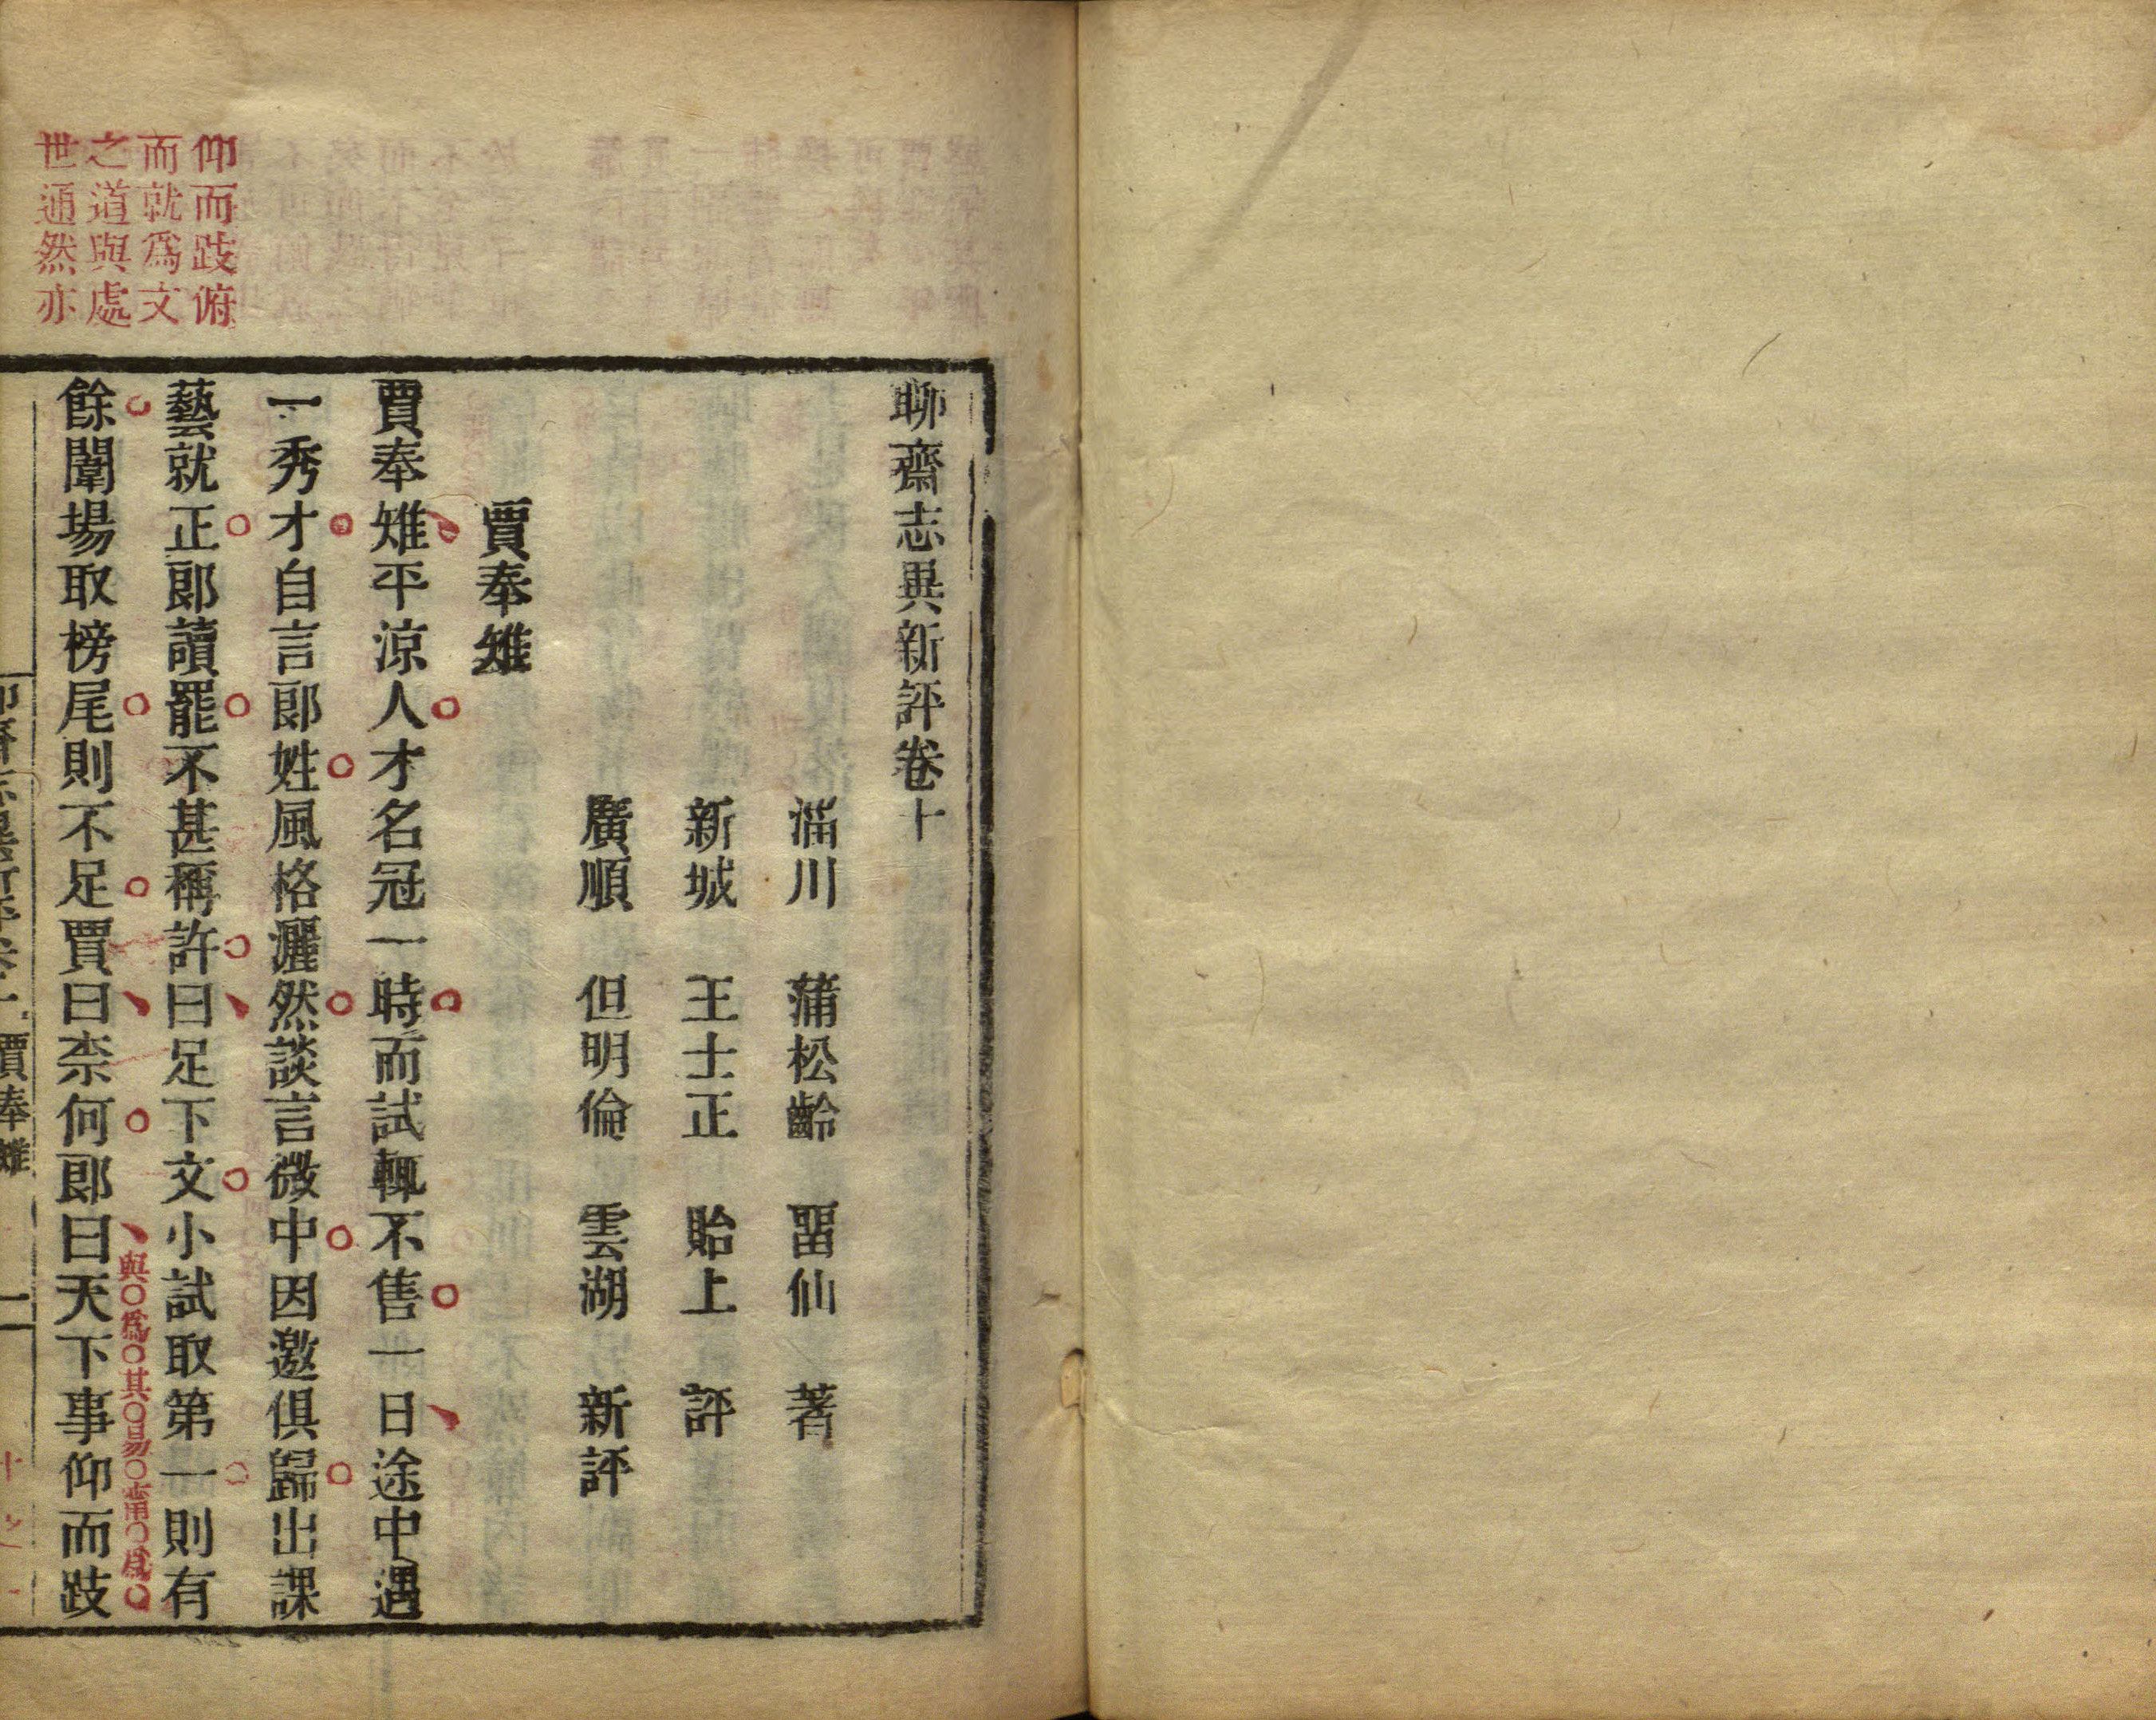 聊齋志異新評卷十
淄川 蒲松齡 畱仙 著
新城 王士正 貽上 評
廣順 但明倫 雲湖 新評
賈奉雉
賈奉雉平涼人才名冠一時而試輒不售一日途中遇
一秀才自言郎姓風格灑然談言微中因邀俱歸出課
藝就正郎讀罷不甚稱許曰足下文小試取第一則有
餘闈場取榜尾則不足賈曰柰何郎曰天下事仰而跂
仰而跂俯
而就爲文
之道與處
世通然亦
賈奉雉
一